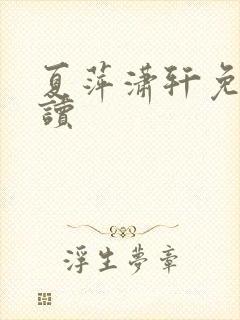 夏萍潇轩免
读
浮生梦章